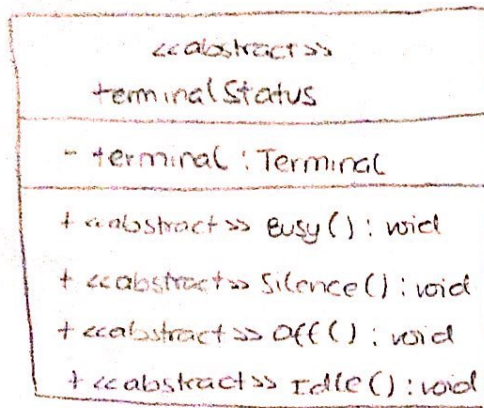 <<abstract>>
terminalStatus
- terminal : Terminal
+ <<abstract>> Busy() : void
+ <<abstract>> Silence() : void
+ <<abstract>> Off() : void
+ <<abstract>> Idle() : void